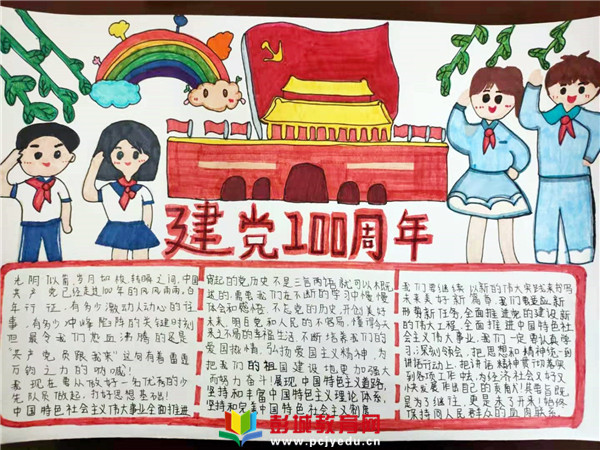 建党100周年
光阴似箭,岁月如梭,转瞬之间,中国
共产党已经走过100年的风风雨雨,百
年行程,有多少激动人心的往
事,有多少冲峰险阵的关键时刻
但最令我们热血沸腾的是
“共产党员跟我来”这句有着雷霆
万钧之力的呐喊!
我现在要从做好一名优秀的少
先队员做起,打好思想基础!
中国特色社会主义伟大事业全面推进
的党历史不是三言两语就可以概
的,需要我们在不断的学习中慢慢
体会和感悟。不忘党的历史,开创美好
未来,明白党和人民的不容易,懂得今天
来之不易的幸福生活,不断培养我们的
爱国热情,弘扬爱国主义精神,为
把我们的祖国建设地更加强大
而努力奋斗!展现中国特色主义道路,
坚持和丰富中国特色主义理论体系,
坚持和完美中国特色社会主义制度
我们要继续以新的伟大实践来书写
未来美好新篇章,我们要
形势新任务,全面推进党的建设新
的伟大工程,全面推进中国特色社
会主义伟大事业,我们一定要认真学
习深刻领会,把思想和精神统一到
讲话行动上,把讲话精神贯彻落实
到各项工作中去,为经济社会又好又
快发展作出自己
是为了继往,更是未了开来!始终
保持同人民群众的血肉联系。
彭城教育网
www.pcjyedu.cn